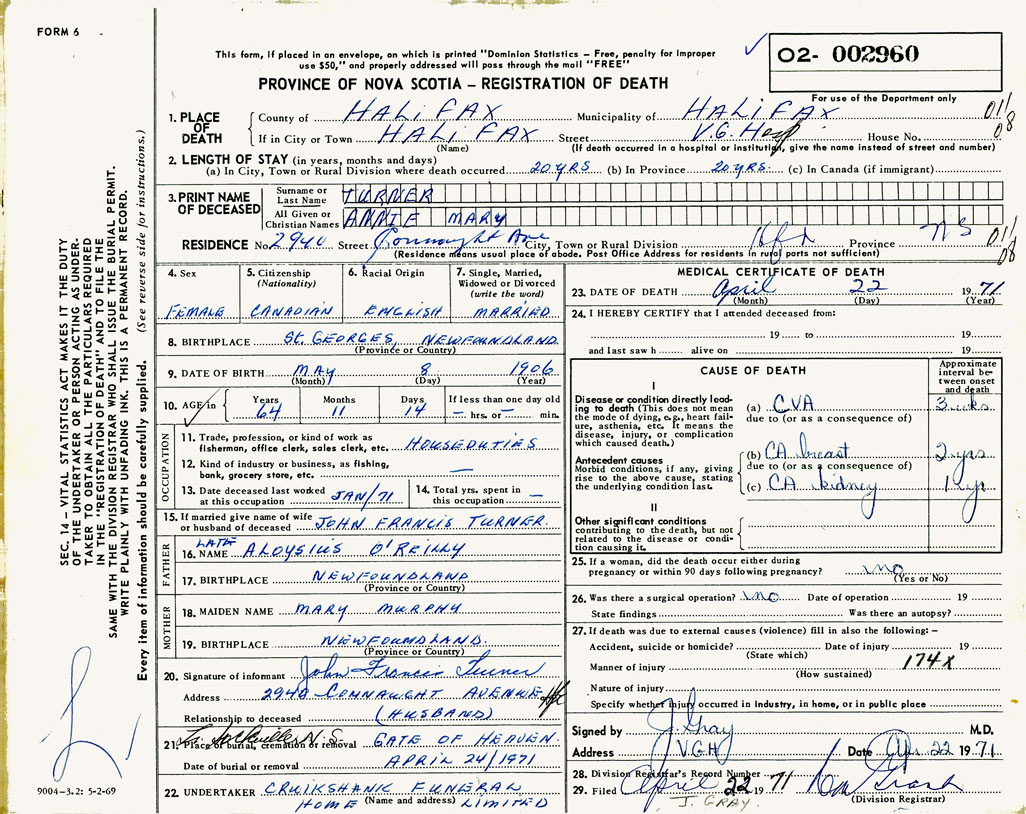 FORM 6
This form, if placed in an envelope, on which is printed "Dominion Statistics – Free, penalty for improper
use $50," and properly addressed will pass through the mail "FREE"
PROVINCE OF NOVA SCOTIA – REGISTRATION OF DEATH
O2- 002960
For use of the Department only
1. PLACE OF DEATH
County of HALIFAX Municipality of HALIFAX 01/08
If in City or Town HALIFAX Street V.G. Hosp House No.
(Name) (If death occurred in a hospital or institution, give the name instead of street and number)
2. LENGTH OF STAY (in years, months and days)
(a) In City, Town or Rural Division where death occurred 20 YRS (b) In Province 20 YRS. (c) In Canada (if immigrant)
3. PRINT NAME OF DECEASED
Surname or Last Name TURNER
All Given or Christian Names ANNIE MARY
RESIDENCE No. 2940 Street Connaught Ave City, Town or Rural Division Hfx Province NS 01/08
(Residence means usual place of abode. Post Office Address for residents in rural parts not sufficient)
4. Sex
FEMALE
5. Citizenship
(Nationality)
CANADIAN
6. Racial Origin
ENGLISH
7. Single, Married,
Widowed or Divorced
(write the word)
MARRIED
8. BIRTHPLACE ST. GEORGES, NEWFOUNDLAND
(Province or Country)
9. DATE OF BIRTH MAY 8 1906
(Month) (Day) (Year)
10. AGE in Years Months Days If less than one day
64 11 14 – hrs. or – min.
OCCUPATION
11. Trade, profession, or kind of work as
fisherman, office clerk, sales clerk, etc. HOUSEDUTIES
12. Kind of industry or business, as fishing,
bank, grocery store, etc. —
13. Date deceased last worked
at this occupation JAN/71
14. Total yrs. spent in
this occupation –
15. If married give name of wife
or husband of deceased JOHN FRANCIS TURNER
FATHER
LATE
16. NAME ALOYSIUS O'REILLY
17. BIRTHPLACE NEWFOUNDLAND
(Province or Country)
MOTHER
18. MAIDEN NAME MARY MURPHY
19. BIRTHPLACE NEWFOUNDLAND.
(Province or Country)
20. Signature of informant John Francis Turner
Address 2940 CONNAUGHT AVENUE Hfx
Relationship to deceased (HUSBAND)
N.S.
21. Place of burial, cremation or removal GATE OF HEAVEN
Date of burial or removal APRIL 24/1971
22. UNDERTAKER CRUIKSHANK FUNERAL
HOME (Name and address) LIMITED
MEDICAL CERTIFICATE OF DEATH
23. DATE OF DEATH April 22 1971
(Month) (Day) (Year)
24. I HEREBY CERTIFY that I attended deceased from:
19 to 19
and last saw h alive on 19
CAUSE OF DEATH
Approximate
interval be-
tween onset
and death
I
Disease or condition directly lead-
ing to death (This does not mean
the mode of dying, e.g., heart fail-
ure, asthenia, etc. It means the
disease, injury, or complication
which caused death.)
(a) CVA 3 wks
due to (or as a consequence of)
Antecedent causes
Morbid conditions, if any, giving
rise to the above cause, stating
the underlying condition last.
(b) CA breast 2 yrs
due to (or as a consequence of)
(c) CA kidney 1 yr
II
Other significant conditions
contributing to the death, but not
related to the disease or condi-
tion causing it.
25. If a woman, did the death occur either during
pregnancy or within 90 days following pregnancy? no
(Yes or No)
26. Was there a surgical operation? no Date of operation 19
State findings Was there an autopsy?
27. If death was due to external causes (violence) fill in also the following: –
Accident, suicide or homicide? Date of injury 19
(State which)
174X
Manner of injury
(How sustained)
Nature of injury
Specify whether injury occurred in industry, in home, or in public place
Signed by J. Gray M.D.
Address V.G.H Date Apr 22 1971
28. Division Registrar's Record Number
29. Filed April 22 1971
(Division Registrar)
J. GRAY.
SEC. 14 – VITAL STATISTICS ACT MAKES IT THE DUTY
OF THE UNDERTAKER OR PERSON ACTING AS UNDER-
TAKER TO OBTAIN ALL THE PARTICULARS REQUIRED
IN THE "REGISTRATION OF DEATH" AND TO FILE THE
SAME WITH THE DIVISION REGISTRAR WHO SHALL ISSUE THE BURIAL PERMIT.
WRITE PLAINLY WITH UNFADING INK. THIS IS A PERMANENT RECORD.
Every item of information should be carefully supplied. (See reverse side for instructions.)
9004-3.2: 5-2-69